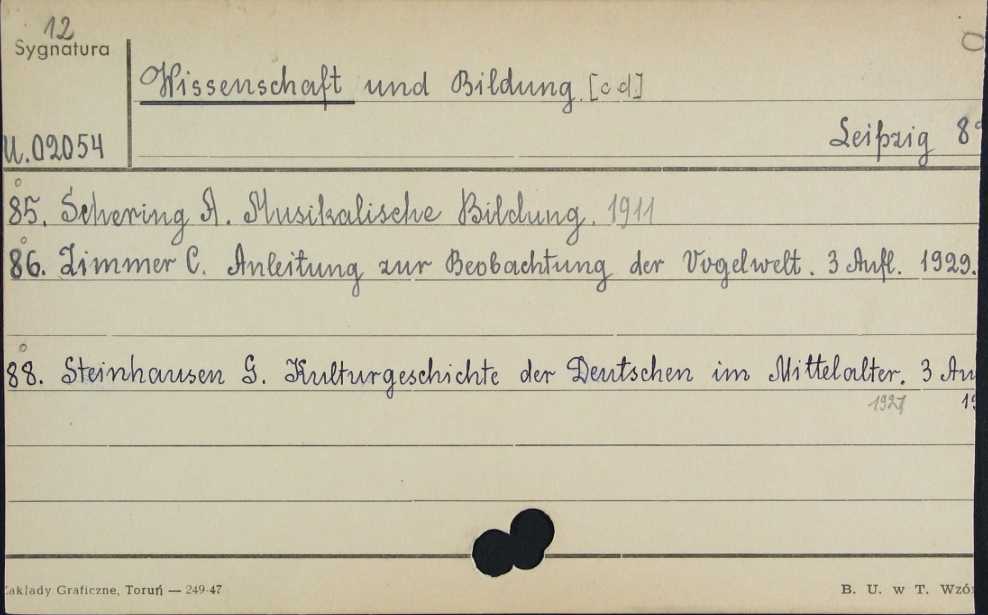 12
Sygnatura
Wissenschaft und Bildung. [c d]
U.02054
Leipzig 8°
85. Schering A. Musikalische Bildung. 1911
86. Zimmer C. Anleitung zur Beobachtung der Vogelwelt. 3 Aufl. 1929.
88. Steinhausen G. Kulturgeschichte der Deutschen im Mittelalter. 3
1927
Graficzne, Toruń — 249-47
B. U. w T.